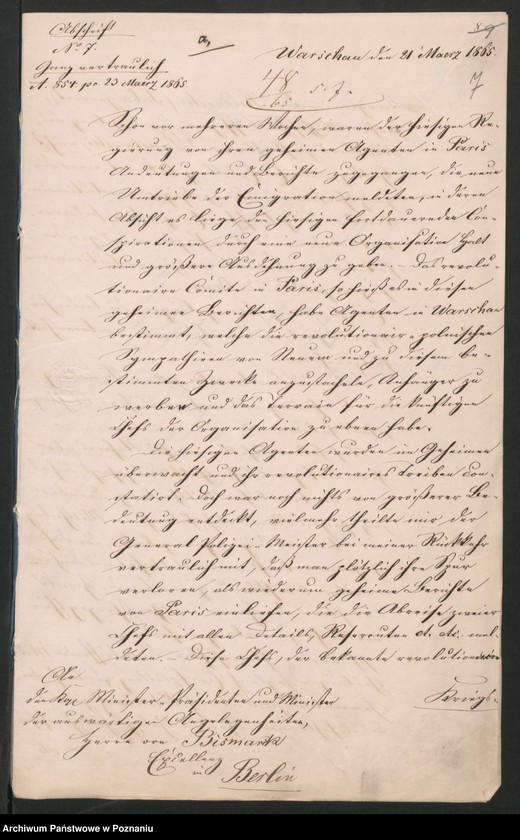 Abschrift
No 7.
Ganz vertraulich
A. 854. pr. 23 Maerz 1865.
a,
Warschau den 21t Maerz 1865.
48/65 s. 7.
7
Schon vor mehreren Wochen, waren der hiesigen Re-
gierung von ihren geheimen Agenten in Paris
Andeutungen und Berichte zugegangen, die neue
Umtriebe der Emigration meldeten, in deren
Absicht es liege, den hiesigen fortdauernden Con-
spirationen durch eine neue Organisation Halt
und größere Ausdehnung zu geben. – Das revolu-
tionaire Comite in Paris, so hieß es in diesen
geheimen Berichten, habe Agenten in Warschau
bestimmt, welche die revolutionair-polnischen
Sympathieen von Neuem und zu diesem be-
stimmten Zwecke anzustacheln, Anhänger zu
werben und das Terrain für die künftigen
Chefs der Organisation zu ebnen habe.
Die hiesigen Agenten wurden im Geheimen
überwacht und ihr revolutionaires Treiben con-
statirt. Doch war noch nichts von größerer Be-
deutung entdeckt, vielmehr theilte mir der
General-Polizei-Meister bei meiner Rückkehr
vertraulich mit, daß man plötzlich ihre Spur
verloren, als wiederum geheime Berichte
von Paris einliefen, die die Abreise zweier
Chefs mit allen Details, Reiserouten etc. etc. mel-
deten. – Diese Chefs, der bekannte revolutionaire
Kriegs-
An
den Kgl Minister-Präsidenten und Minister
der auswärtigen Angelegenheiten,
Herrn von Bismark
Excellenz
in Berlin
Archiwum Państwowe w Poznaniu